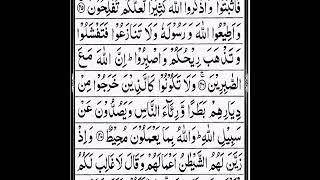 فَاثْبُتُوْا وَاذْكُرُوا اللّٰهَ كَثِيْرًا لَّعَلَّكُمْ تُفْلِحُوْنَ ﴿۴۵﴾
وَاَطِيْعُوا اللّٰهَ وَرَسُوْلَهٗ وَلَا تَنَازَعُوْا فَتَفْشَلُوْا
وَتَذْهَبَ رِيْحُكُمْ وَاصْبِرُوْا ؕ اِنَّ اللّٰهَ مَعَ
الصّٰبِرِيْنَ ﴿۴۶﴾ وَلَا تَكُوْنُوْا كَالَّذِيْنَ خَرَجُوْا مِنْ
دِيَارِهِمْ بَطَرًا وَّرِئَآءَ النَّاسِ وَيَصُدُّوْنَ عَنْ
سَبِيْلِ اللّٰهِ ؕ وَاللّٰهُ بِمَا يَعْمَلُوْنَ مُحِيْطٌ ﴿۴۷﴾ وَاِذْ
زَيَّنَ لَهُمُ الشَّيْطٰنُ اَعْمَالَهُمْ وَقَالَ لَا غَالِبَ لَكُمُ